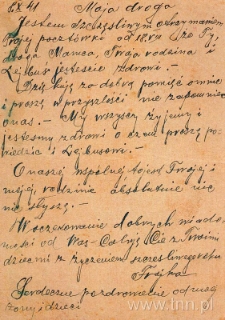 5.X.41 Moja droga
Jestem szczęśliwy otrzymaniem
Twojej pocztówki od 18.VIII że Ty,
droga Mamca, Twoja rodzina i
Lejbuś jesteście zdrowi. -
Dziękuję za dobrą pamięć o mnie
i proszę w przyszłości nie zapominać
o nas. - My wszyscy żyjemy i
jesteśmy zdrowi o dzieci proszę po-
wiedzieć i Lejbusiowi. -
O naszej wspólnej to jest Twojej i
mojej rodzinie absolutnie nic
nie słyszę. -
W oczekiwaniu dobrych wiadom-
ności od Was - Całuję Cię z Twoimi
dziećmi z życzeniem szczęśliwego
Fojka
Serdeczne pozdrowienie od mego
żony i dzieci
www.tnn.pl